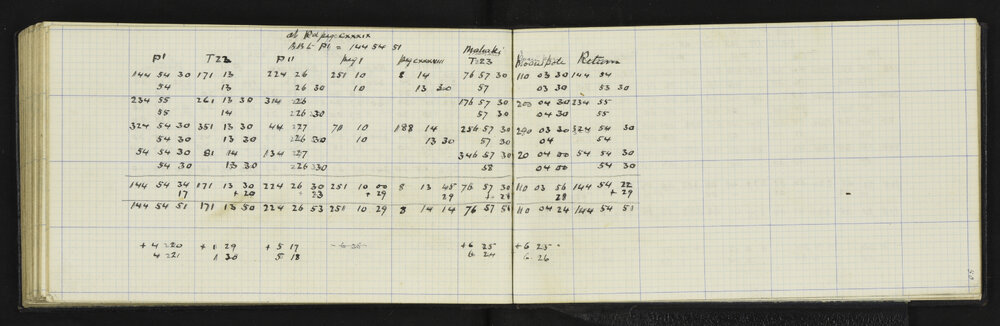 Rd peg CXXXIX
P1 = 144 54 51
P1 T23 P11 peg 1 peg CXXXXIII Mahaki T:23 Pole Return
144 54 30 171 13 224 26 251 10 8 14 76 57 30 110 03 30 144 54
54 13 26 30 10 13 30 57 03 30 53 30
234 55 261 13 30 314 226 176 57 30 200 04 30 234 55
55 14 226 30 57 30 04 30 55
324 54 30 351 13 30 44 227 70 10 188 14 256 57 30 290 03 30 324 54 30
54 30 13 30 226 30 10 13 30 57 30 04 54
54 54 30 81 14 134 227 346 57 30 20 04 00 54 54 30
54 30 13 30 226 30 58 04 00 54 30
144 54 34 171 13 30 224 26 30 251 10 00 8 13 45 76 57 30 110 03 56 144 54 22
17 + 20 + 23 + 29 29 + 28 28 + 29
144 54 51 171 13 50 224 26 53 251 10 29 8 14 14 76 57 58 110 04 24 144 54 51
+ 4 220 + 1 29 + 5 17 + 6 25 + 6 25
4 221 1 30 5 18 6 24 6 26
50